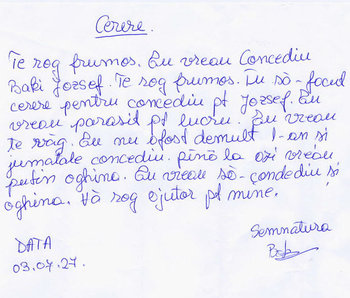 Cerere.
Te rog frumos. Eu vreau Concediu
Baki Jozsef. Te rog frumos. Eu să-facut
cerere pentru concediu pt Jozsef. Eu
vreau parasit pt lucru. Eu vreau
te răg. Eu nu ofost demult 1-an si
jumatate concediu. pînă la azi vreau
putin oghina. Eu vreau să-condediu și
oghina. Vă rog ojutor pt mine.
Semnatura
DATA
03.07.27.